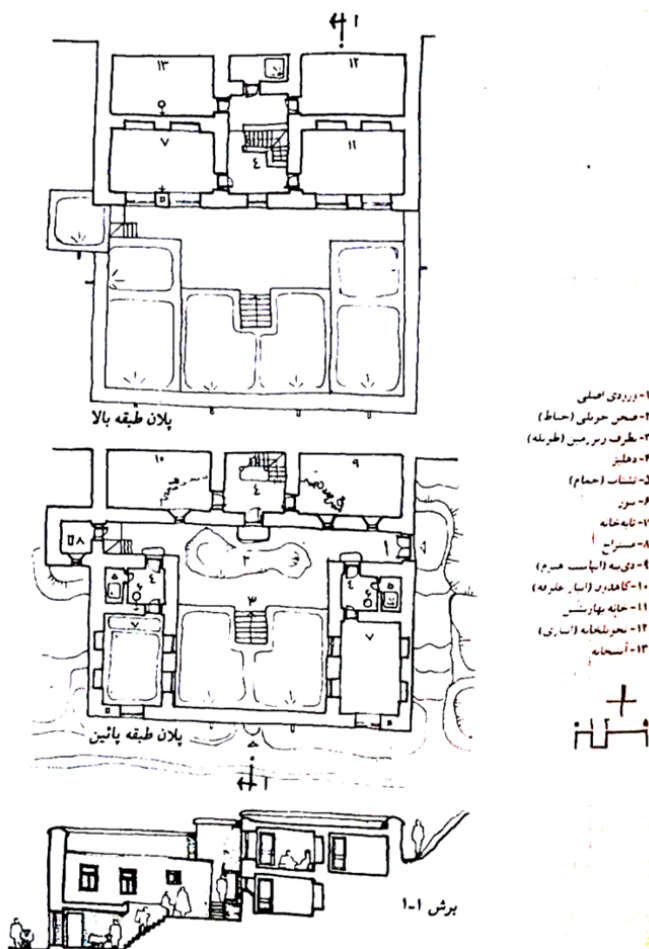 ۱
۱۳
۱۲
۷
۴
۱۱
پلان طبقه بالا
۱۰
۴
۹
۸
۲
۱
۵
۴
۶
۳
۴
۶
۵
۷
۷
پلان طبقه پائین
۱
برش ۱-۱
۱-ورودی اصلی
۲-صحن حویلی (حیاط)
۳-بطرف زیرزمین (طویله)
۴-دهلیز
۵-تشناب (حمام)
۶-
۷-تابه‌خانه
۸-مستراح
۹- (انباشت هیزم)
۱۰-کاهدون (انبار علوفه)
۱۱-خانه بهارنشین
۱۲-تحویلخانه (انباری)
۱۳-آشپزخانه